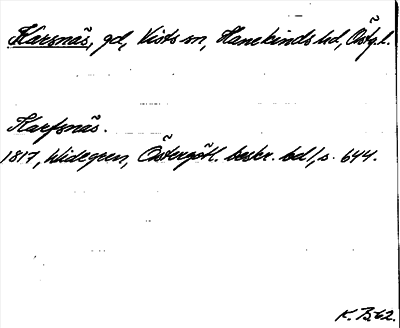 Karsnäs, gd, Vists sn, Hanekinds hd, Östg.l.
Karfsnäs.
1817, Widegren, Östergötl. beskr. bd 1, s. 644.
K. B 62.